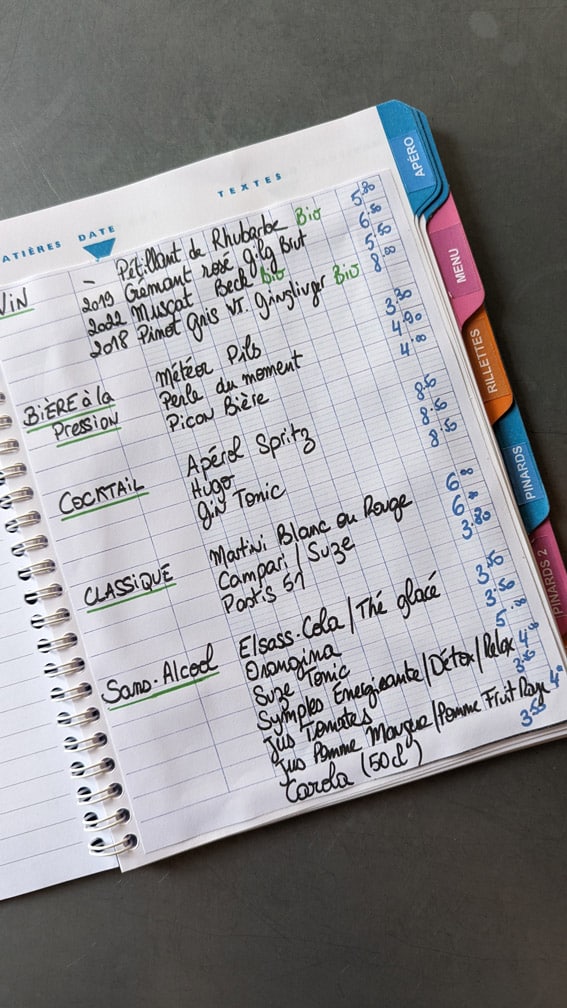 ATIÈRES DATE TEXTES
VIN - Pétillant de Rhubarbe Bio 5.80
2019 Crémant rosé Gilg Brut 6.50
2022 Muscat Beck Bio 5.50
2018 Pinot Gris VT. Ginglinger Bio 8.00
BIÈRE à la Pression
Météor Pils 3.30
Perle du moment 4.90
Picon Bière 4.00
COCKTAIL Apérol Spritz 8.50
Hugo 8.50
Gin Tonic 8.50
CLASSIQUE Martini Blanc ou Rouge 6.00
Campari / Suze 6.00
Pastis 51 3.80
Sans-Alcool Elsass-Cola / Thé glacé 3.50
Orangina 3.50
Suze Tonic 5.00
Symples Énergisante / Détox / Relax 4.00
Jus Tomates 3.50
Jus Pomme Mangue / Pomme Fruit Rouge 4.00
Carola (50cl) 3.50
APÉRO
MENU
RILLETTES
PINARDS
PINARDS 2